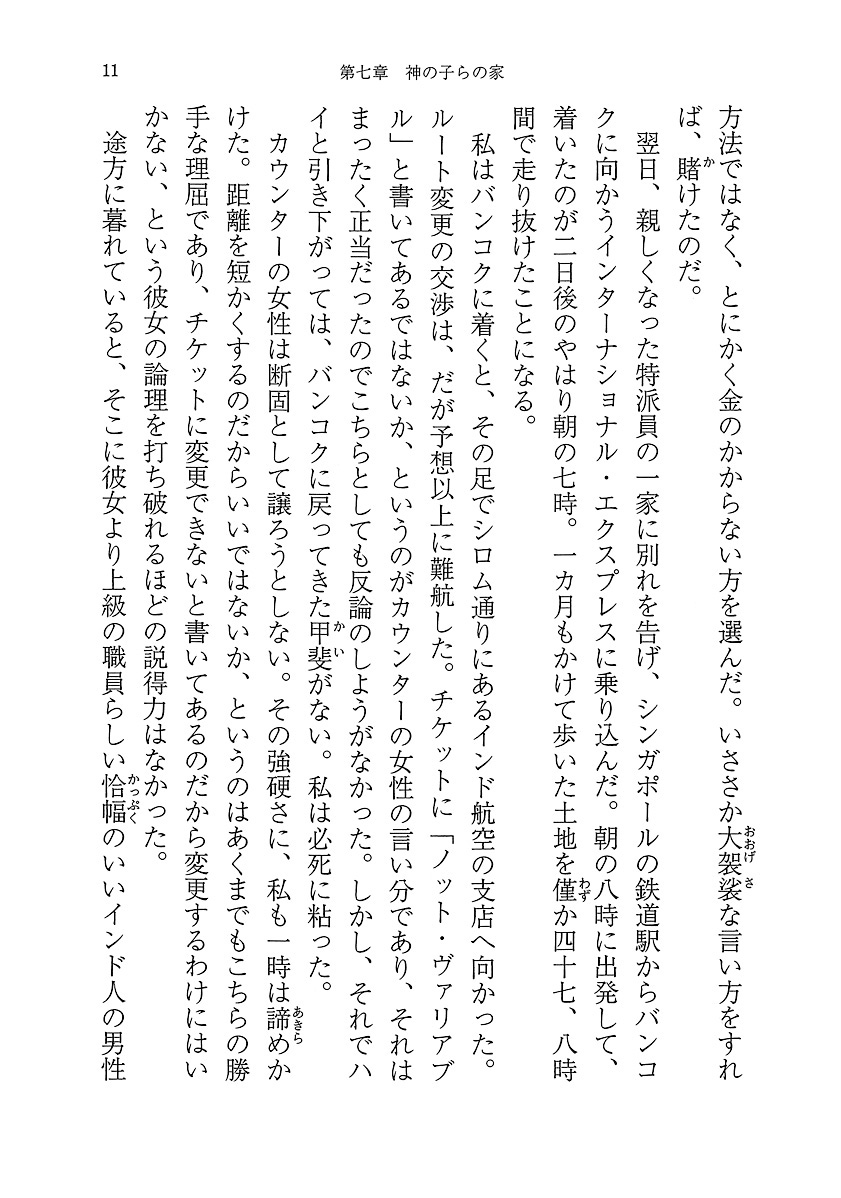 11
第七章　神の子らの家
方法ではなく、とにかく金のかからない方を選んだ。いささか大袈裟な言い方をすれ
ば、賭けたのだ。
　翌日、親しくなった特派員の一家に別れを告げ、シンガポールの鉄道駅からバンコ
クに向かうインターナショナル・エクスプレスに乗り込んだ。朝の八時に出発して、
着いたのが二日後のやはり朝の七時。一カ月もかけて歩いた土地を僅か四十七、八時
間で走り抜けたことになる。
　私はバンコクに着くと、その足でシロム通りにあるインド航空の支店へ向かった。
ルート変更の交渉は、だが予想以上に難航した。チケットに「ノット・ヴァリアブ
ル」と書いてあるではないか、というのがカウンターの女性の言い分であり、それは
まったく正当だったのでこちらとしても反論のしようがなかった。しかし、それでハ
イと引き下がっては、バンコクに戻ってきた甲斐がない。私は必死に粘った。
　カウンターの女性は断固として譲ろうとしない。その強硬さに、私も一時は諦めか
けた。距離を短かくするのだからいいではないか、というのはあくまでもこちらの勝
手な理屈であり、チケットに変更できないと書いてあるのだから変更するわけにはい
かない、という彼女の論理を打ち破れるほどの説得力はなかった。
　途方に暮れていると、そこに彼女より上級の職員らしい恰幅のいいインド人の男性